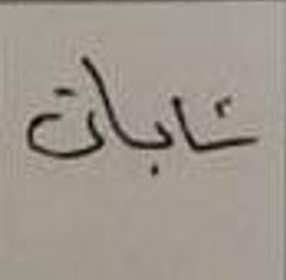 شابات